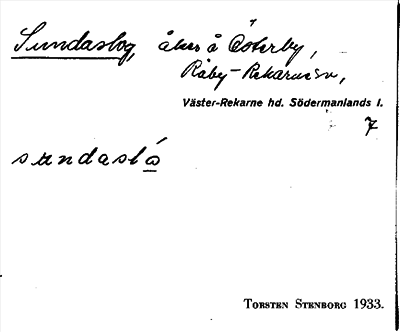 Sundaslog, åker å Österby,
Råby-Rekarne sn,
Väster-Rekarne hd. Södermanlands l.
7
sundasló
Torsten Stenborg 1933.